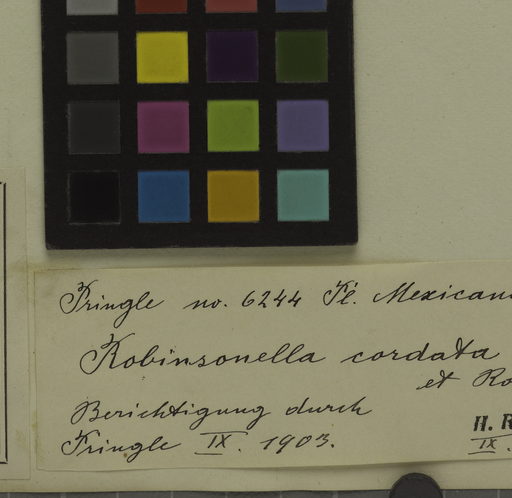 Pringle no. 6244 Pl. Mexican
Robinsonella cordata
et Ro
Berichtigung durch
Pringle IX. 1903.
H. R
IX.